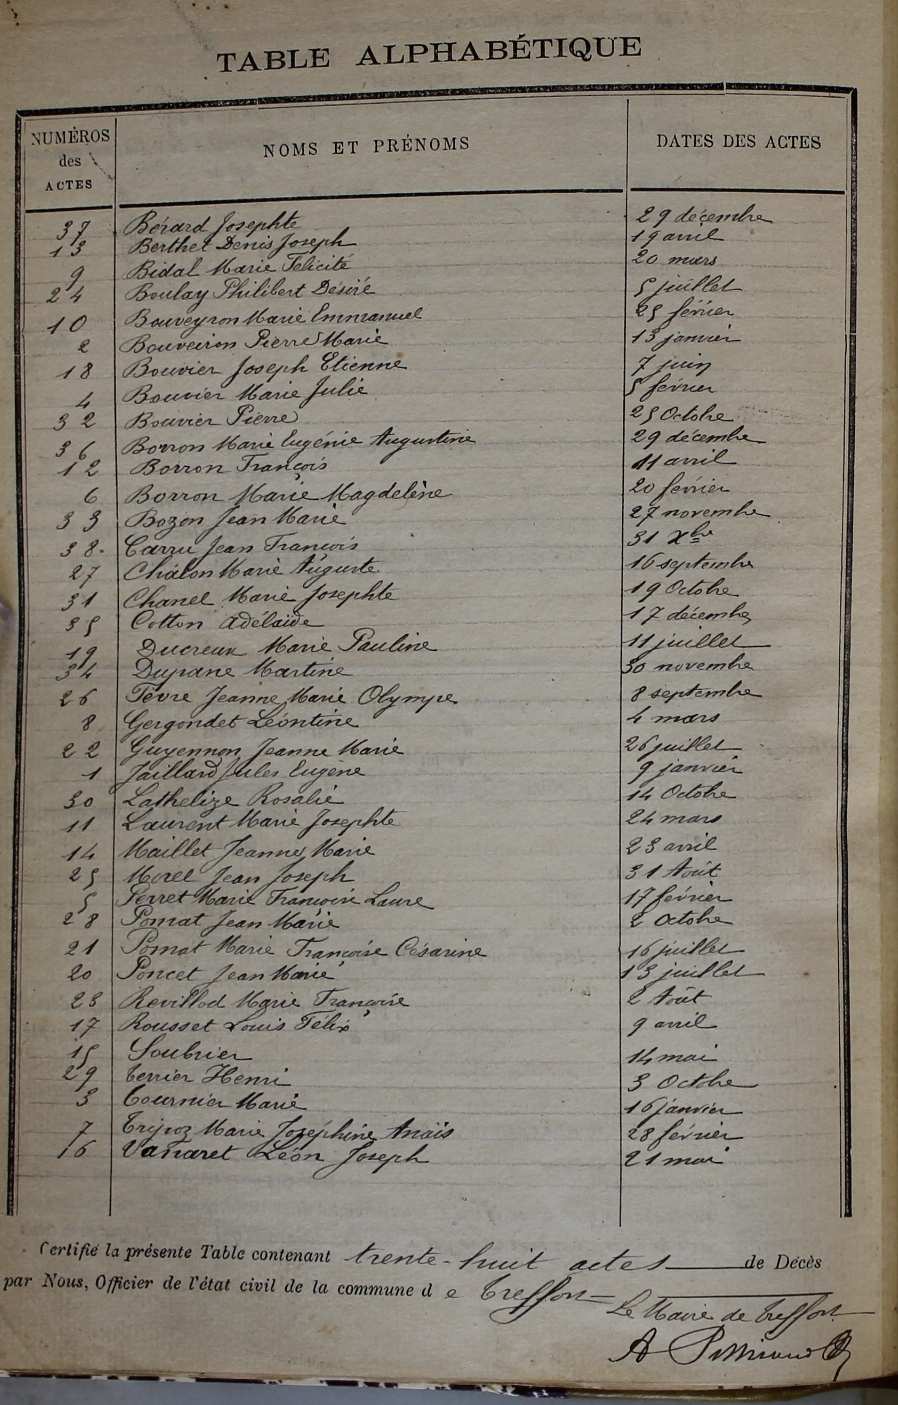 TABLE ALPHABÉTIQUE
NUMÉROS des ACTES NOMS ET PRÉNOMS DATES DES ACTES
37 Bérard Josephte 29 décembre
13 Berthet Denis Joseph 19 avril
9 Bidal Marie Félicité 20 mars
24 Boulay Philibert Désiré 5 juillet
10 Bouveyron Marie Emmanuel 25 février
2 Bouveiron Pierre Marie 13 janvier
18 Bouvier Joseph Etienne 7 juin
4 Bouvier Marie Julie 5 février
32 Bouvier Pierre 25 Octobre
36 Borron Marie Eugénie Augustine 29 décembre
12 Borron François 11 avril
6 Borron Marie Magdelène 20 février
33 Bozon Jean Marie 27 novembre
38 Carru Jean François 31 Xbre
27 Châlon Marie Auguste 16 septembre
31 Chanel Marie Josephte 19 Octobre
35 Cotton Adélaïde 17 décembre
19 Ducreux Marie Pauline 11 juillet
34 Dupane Martine 30 novembre
26 Fèvre Jeanne Marie Olympe 8 septembre
8 Gergondet Léontine 4 mars
22 Guyennon Jeanne Marie 26 juillet
1 Jaillard Jules Eugène 9 janvier
30 Lathelize Rosalie 14 Octobre
11 Laurent Marie Josephte 24 mars
14 Maillet Jeanne Marie 23 avril
25 Morel Jean Joseph 31 Août
5 Perret Marie Françoise Laure 17 février
28 Pomat Jean-Marie 2 Octobre
21 Pomat Marie Françoise Césarine 16 juillet
20 Poncet Jean Marie 13 juillet
23 Revillod Marie Françoise 2 Août
17 Rousset Louis Félix 9 avril
15 Soubrier 14 mai
29 Terrier Henri 3 Octobre
3 Tournier Marie 16 janvier
7 Tripoz Marie Joséphine Anaïs 28 février
16 Vanaret Léon Joseph 21 mai
Certifié la présente Table contenant trente-huit actes de Décès
par Nous, Officier de l'état civil de la commune de Treffort
Le Maire de Treffort
A